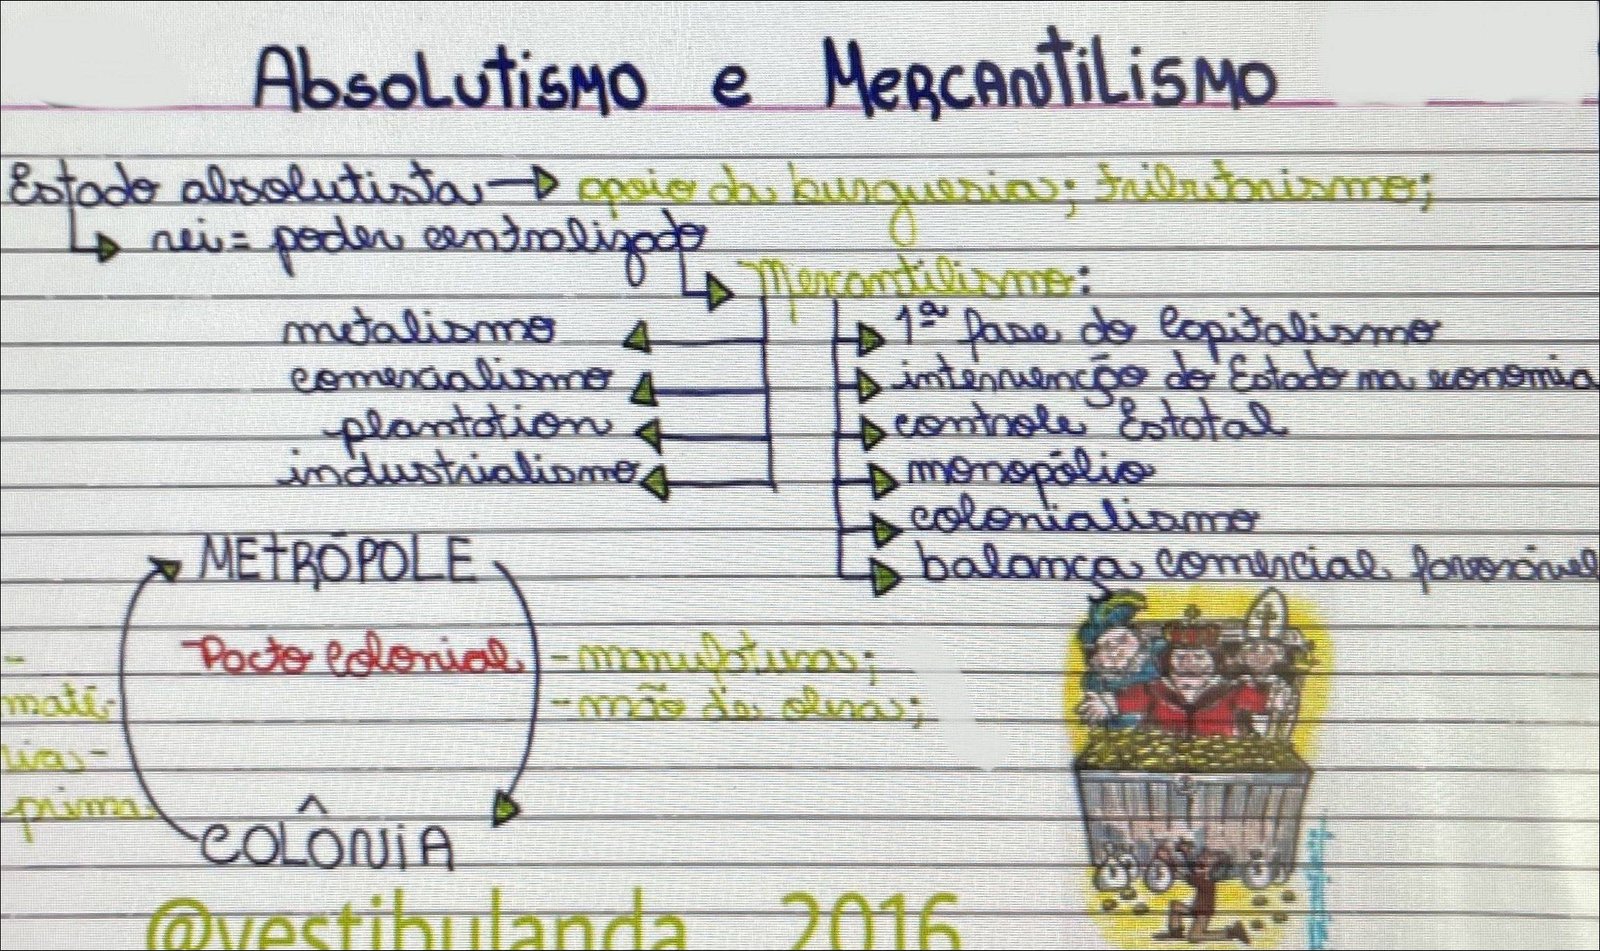 Absolutismo e Mercantilismo
Estado absolutista → apoio da burguesia; tributarismo;
rei = poder centralizado
Mercantilismo:
metalismo
comercialismo
plantation
industrialismo
1ª fase do Capitalismo
intervenção do Estado na economia
controle Estatal
monopólio
colonialismo
balança comercial favorável
METRÓPOLE
Pacto Colonial
- manufaturas;
- mão de obra;
- maté-
rias-
prima
COLÔNIA
@vestibulanda_2016